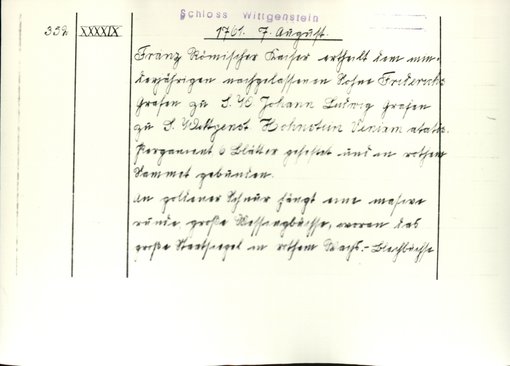 Schloss Wittgenstein
352 XXXXIX 1761. 7. August.
Franz Römischer Kaiser ertheilt dem min-
derjährigen nachgelassenen Sohne Friderichs
Grafen zu S. W. Johann Ludwig Grafen
zu S. Wittgenst Hohnstein Veniam etatis.
Pergament 6 Blätter geheftet und in rothem
Sammet gebunden.
An goldener Schnur hängt eine massive
runde große Messingbüchse, woran das
große Staatssiegel in rothem Wachs.- Blechbüchse